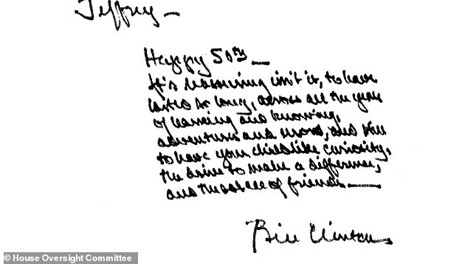 Jeffrey —
Happy 50th —
It's reassuring isn't it, to have
lasted as long, across all the years
of learning and knowing,
adventures and and
to have your childlike curiosity,
the drive to make a difference,
and the solace of friends. —
Bill Clinton
© House Oversight Committee